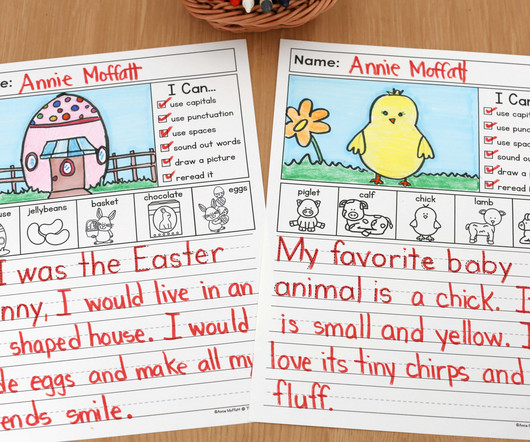 e: Annie Moffatt
I Can...
use capitals
use punctuation
use spaces
sound out words
draw a picture
reread it
use
jellybeans
basket
chocolate
eggs
I was the Easter
nny, I would live in an
shaped house. I would
de eggs and make all my
ends smile.
©Annie Moffatt @ T
Name: Annie Moffatt
I Can
use cap
use pun
use spa
sound o
draw a
reread i
piglet
calf
chick
lamb
My favorite baby
animal is a chick. I
is small and yellow. I
love its tiny chirps and
fluff.
©Annie Moffa